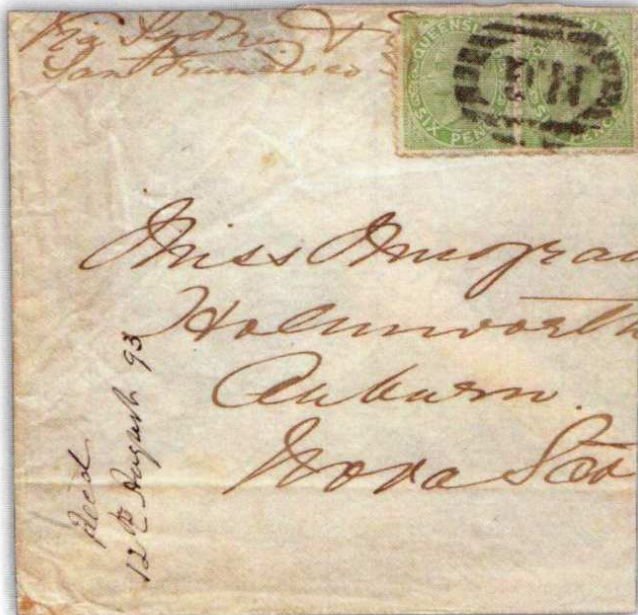 Via Sydney &
San Francisco
QUEENSLAND
SIX PENCE
SIX PENCE
Miss Musgrav
Holmworth
Auburn.
Nova Sco
Recd
12th August 93